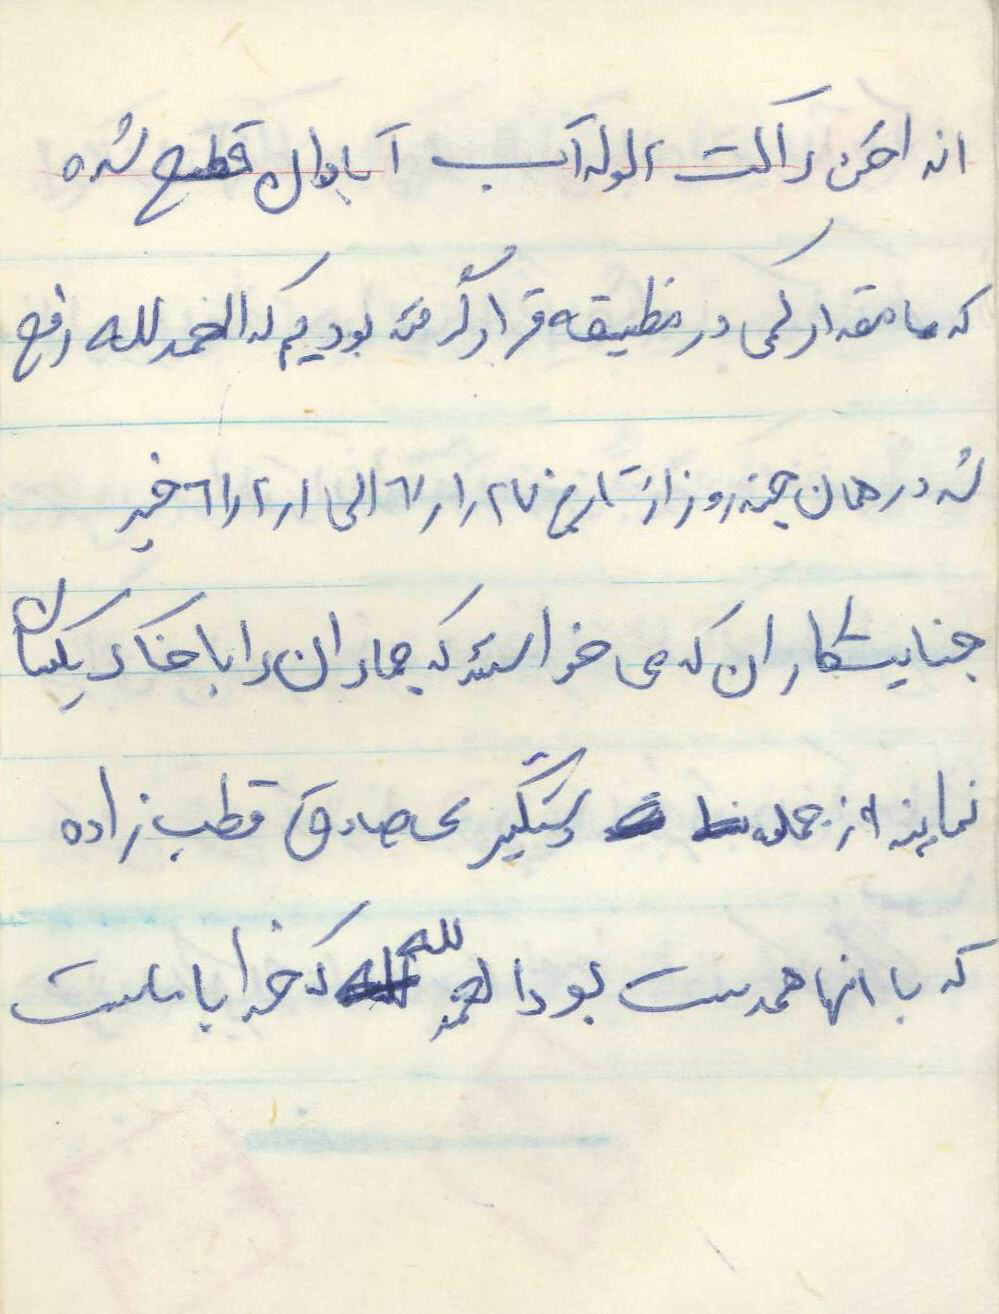 انداختن راکت لوله آب آبادان قطع شده
که ما مقدار کمی در مظیقه قرار گرفته بودیم که الحمد لله رفع
شد در همان چند روز از تاریخ ۲۷ر۱ر۶۱ الی ۱ر۲ر۶۱ خبر
جنایتکاران که می خواستند که جماران را با خاک یکسان
نمایند از جمله دستگیری صادق قطب زاده
که با انها همدست بود الحمد لله که خدا با ماست